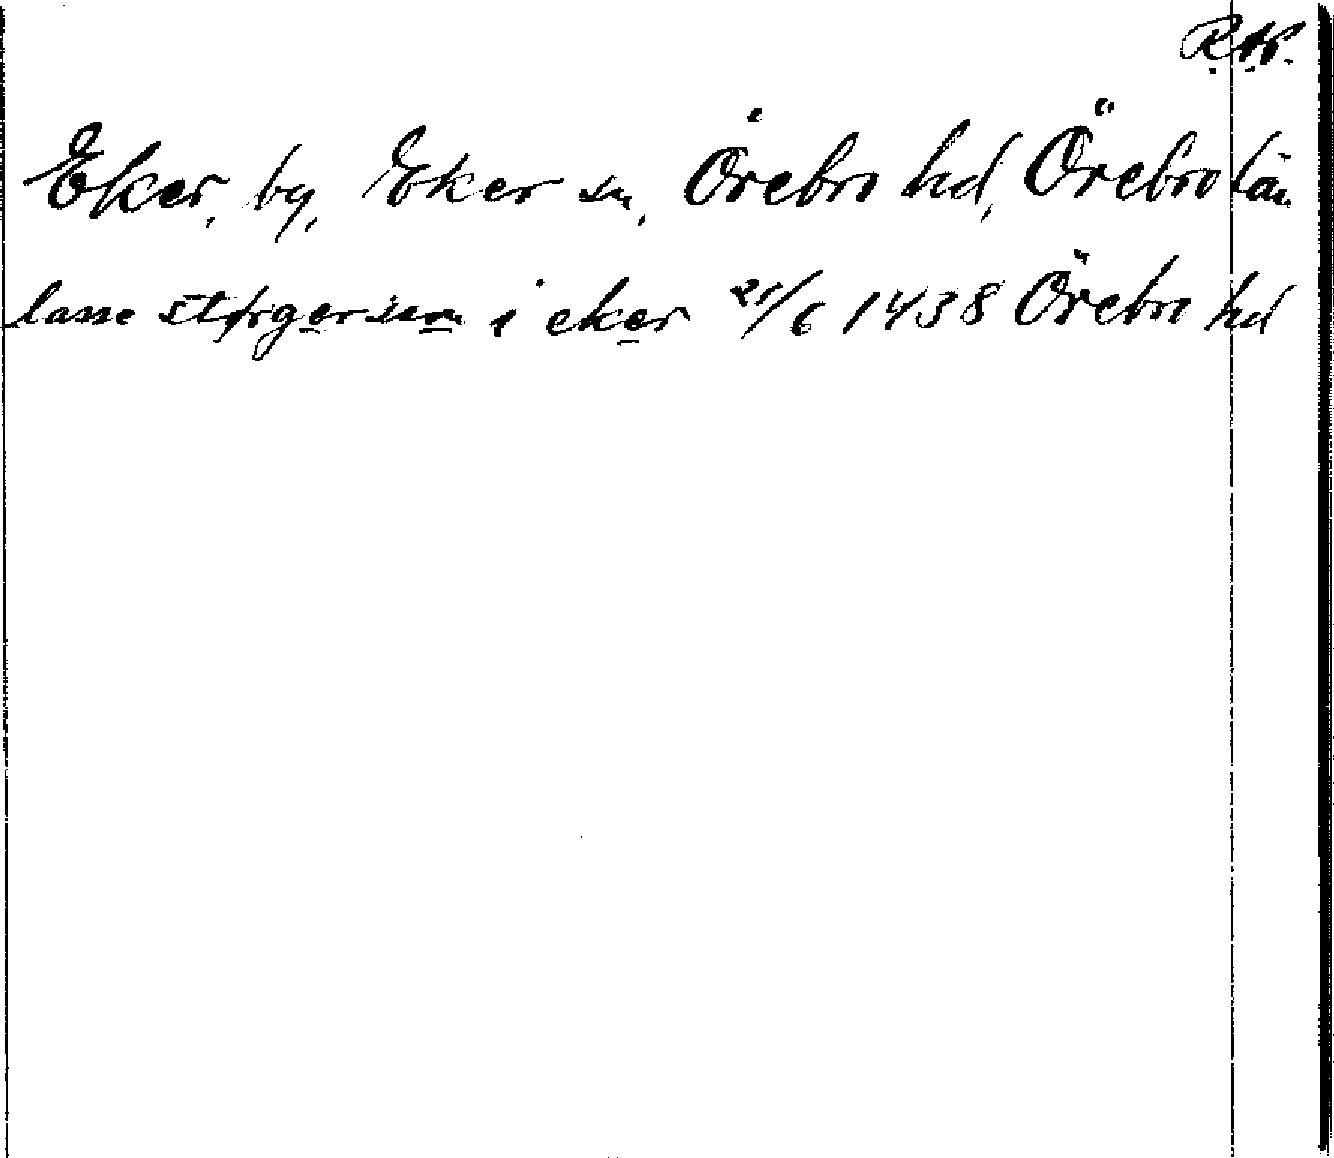 R.A.P.
Eker, by, Eker sn, Örebro hd, Örebro län
lasse størgersson i eker 25/6 1438 Örebro hd